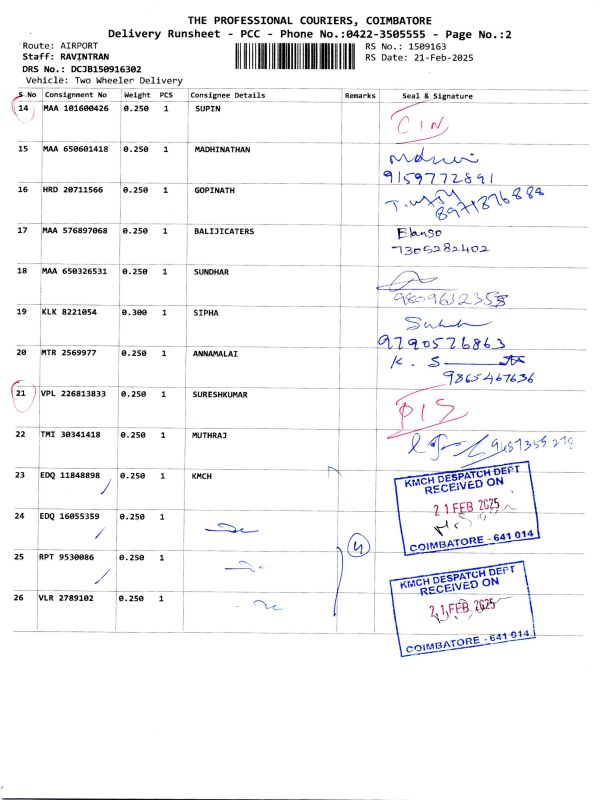 THE PROFESSIONAL COURIERS, COIMBATORE
Delivery Runsheet - PCC - Phone No.:0422-3505555 - Page No.:2
Route: AIRPORT RS No.: 1509163
Staff: RAVINTRAN RS Date: 21-Feb-2025
DRS No.: DCJB150916302
Vehicle: Two Wheeler Delivery
S No Consignment No Weight PCS Consignee Details Remarks Seal & Signature
14 MAA 101600426 0.250 1 SUPIN
CIN
15 MAA 650601418 0.250 1 MADHINATHAN
9159772891
16 HRD 20711566 0.250 1 GOPINATH
8971876888
17 MAA 576897068 0.250 1 BALIJICATERS Elanso
7305282402
18 MAA 650326531 0.250 1 SUNDHAR
9809632353
19 KLK 8221054 0.300 1 SIPHA
9790576863
20 MTR 2569977 0.250 1 ANNAMALAI K. S
9865467636
21 VPL 226813833 0.250 1 SURESHKUMAR
PIS
22 TMI 30341418 0.250 1 MUTHRAJ
23 EDQ 11848898 0.250 1 KMCH
KMCH DESPATCH DEPT
RECEIVED ON
21 FEB 2025
COIMBATORE - 641 014
24 EDQ 16055359 0.250 1
4
25 RPT 9530086 0.250 1
26 VLR 2789102 0.250 1
KMCH DESPATCH DEPT
RECEIVED ON
21 FEB 2025
COIMBATORE - 641 014